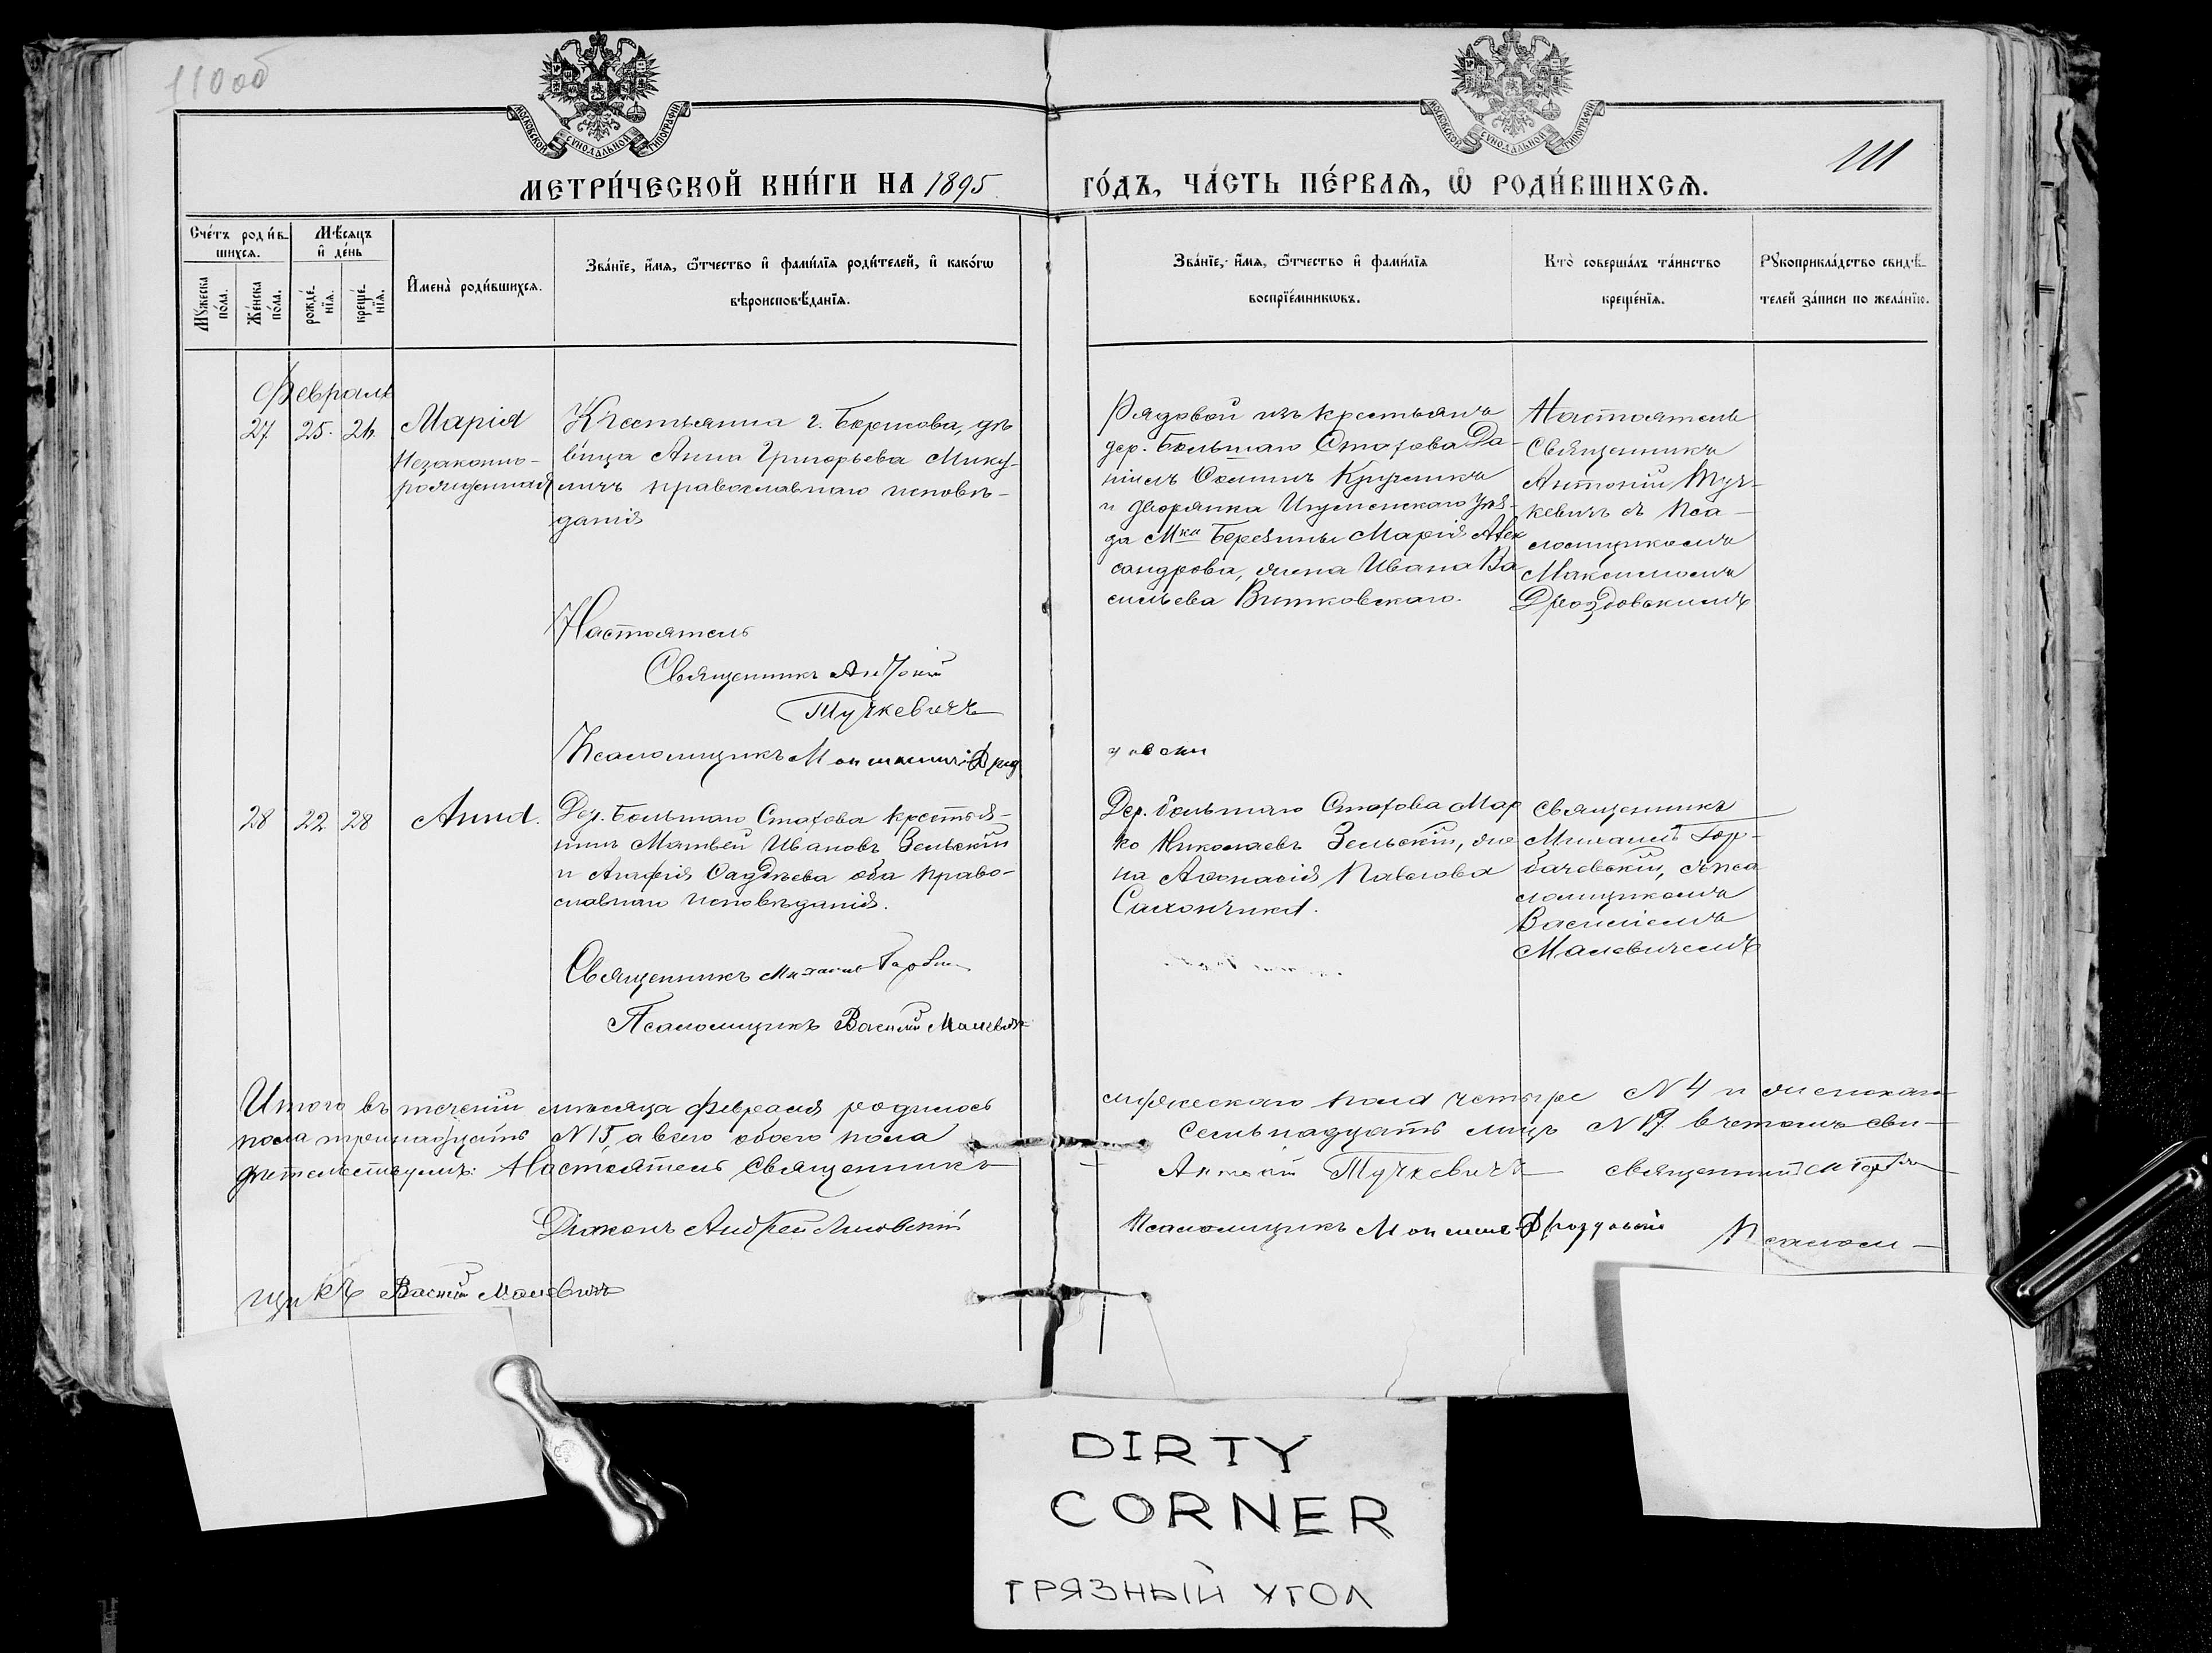 110об
МОСКОВСКОЙ СУНОДАЛЬНОЙ ТИПОГРАФІИ
МЕТРИ́ЧЕСКОЙ КНИ́ГИ НА 1895
Сче́тъ роди́в-
шихсѧ.
Мѣ́сѧцъ
и҆ де́нь
Мꙋ́жеска
по́ла.
Же́нска
по́ла.
рожде́-
нїѧ.
креще́-
нїѧ.
И҆мена̀ роди́вшихсѧ.
Зва́нїе, и҆́мѧ, ѻ҆́тчество и҆ фами́лїѧ роди́телей, и҆ како́гѡ
вѣроисповѣ́данїѧ.
Февраль
27 25. 26.
Марія
Незаконно-
рожденная
Крестьянка г. Борисова, дѣ
вица Анна Григорьева Мику-
личъ православнаго исповѣ-
данія
Настоятель
Священникъ Антоній
Тучкевичъ
Псаломщикъ
28 22 28
Анна.
Дер. Большаго Стахова крестья-
нинъ Матвей Ивановъ Зельскій
и Агафія Фаддѣева оба право-
славнаго исповѣданія.
Священникъ Михаилъ
Псаломщикъ Василій Малевичъ
Итого въ теченіи мѣсяца февраля родилось
пола тринадцать №13, а всего обоего пола
дѣтельствуемъ: Настоятель Священникъ
Діаконъ Андрей
щикъ Василій Малевичъ
МОСКОВСКОЙ СУНОДАЛЬНОЙ ТИПОГРАФІИ
111
ГО́ДЪ, ЧА́СТЬ ПЕ́РВАѦ, Ѡ҆ РОДИ́ВШИХСѦ.
Зва́нїе, и҆́мѧ, ѻ҆́тчество и҆ фами́лїѧ
воспрїе́мникѡвъ.
Кто̀ соверша́лъ та́инство
креще́нїѧ.
Рꙋкоприкла́дство свидѣ́-
телей за́писи по жела́нїю.
Рядовой изъ крестьянъ
дер. Большаго Стахова Да-
ніилъ Фоминъ Крученокъ
и дворянка Игуменскаго уѣз-
да Мка Березины Марія Алек
сандрова, жена Ивана Ва
сильева Витковскаго.
Настоятель
Священникъ
Антоній Туч-
кевичъ съ Пса-
ломщикомъ
Максимомъ
Дроздовскимъ
Дер. Большаго Стахова Мар
ко Николаевъ Зельскій, же
на Афонасія Павлова
Священникъ
Михаилъ Гор-
бачевскій, съ пса
ломщикомъ
Василіемъ
Малевичемъ
мужескаго пола четыре №4 и женскаго
семьнадцать лицъ №17 въ чемъ сви-
Антоній Тучкевичъ священникъ
Псаломщикъ Максимъ Дроздовскій
Псалом-
DIRTY
CORNER
ГРЯЗНЫЙ УГОЛ